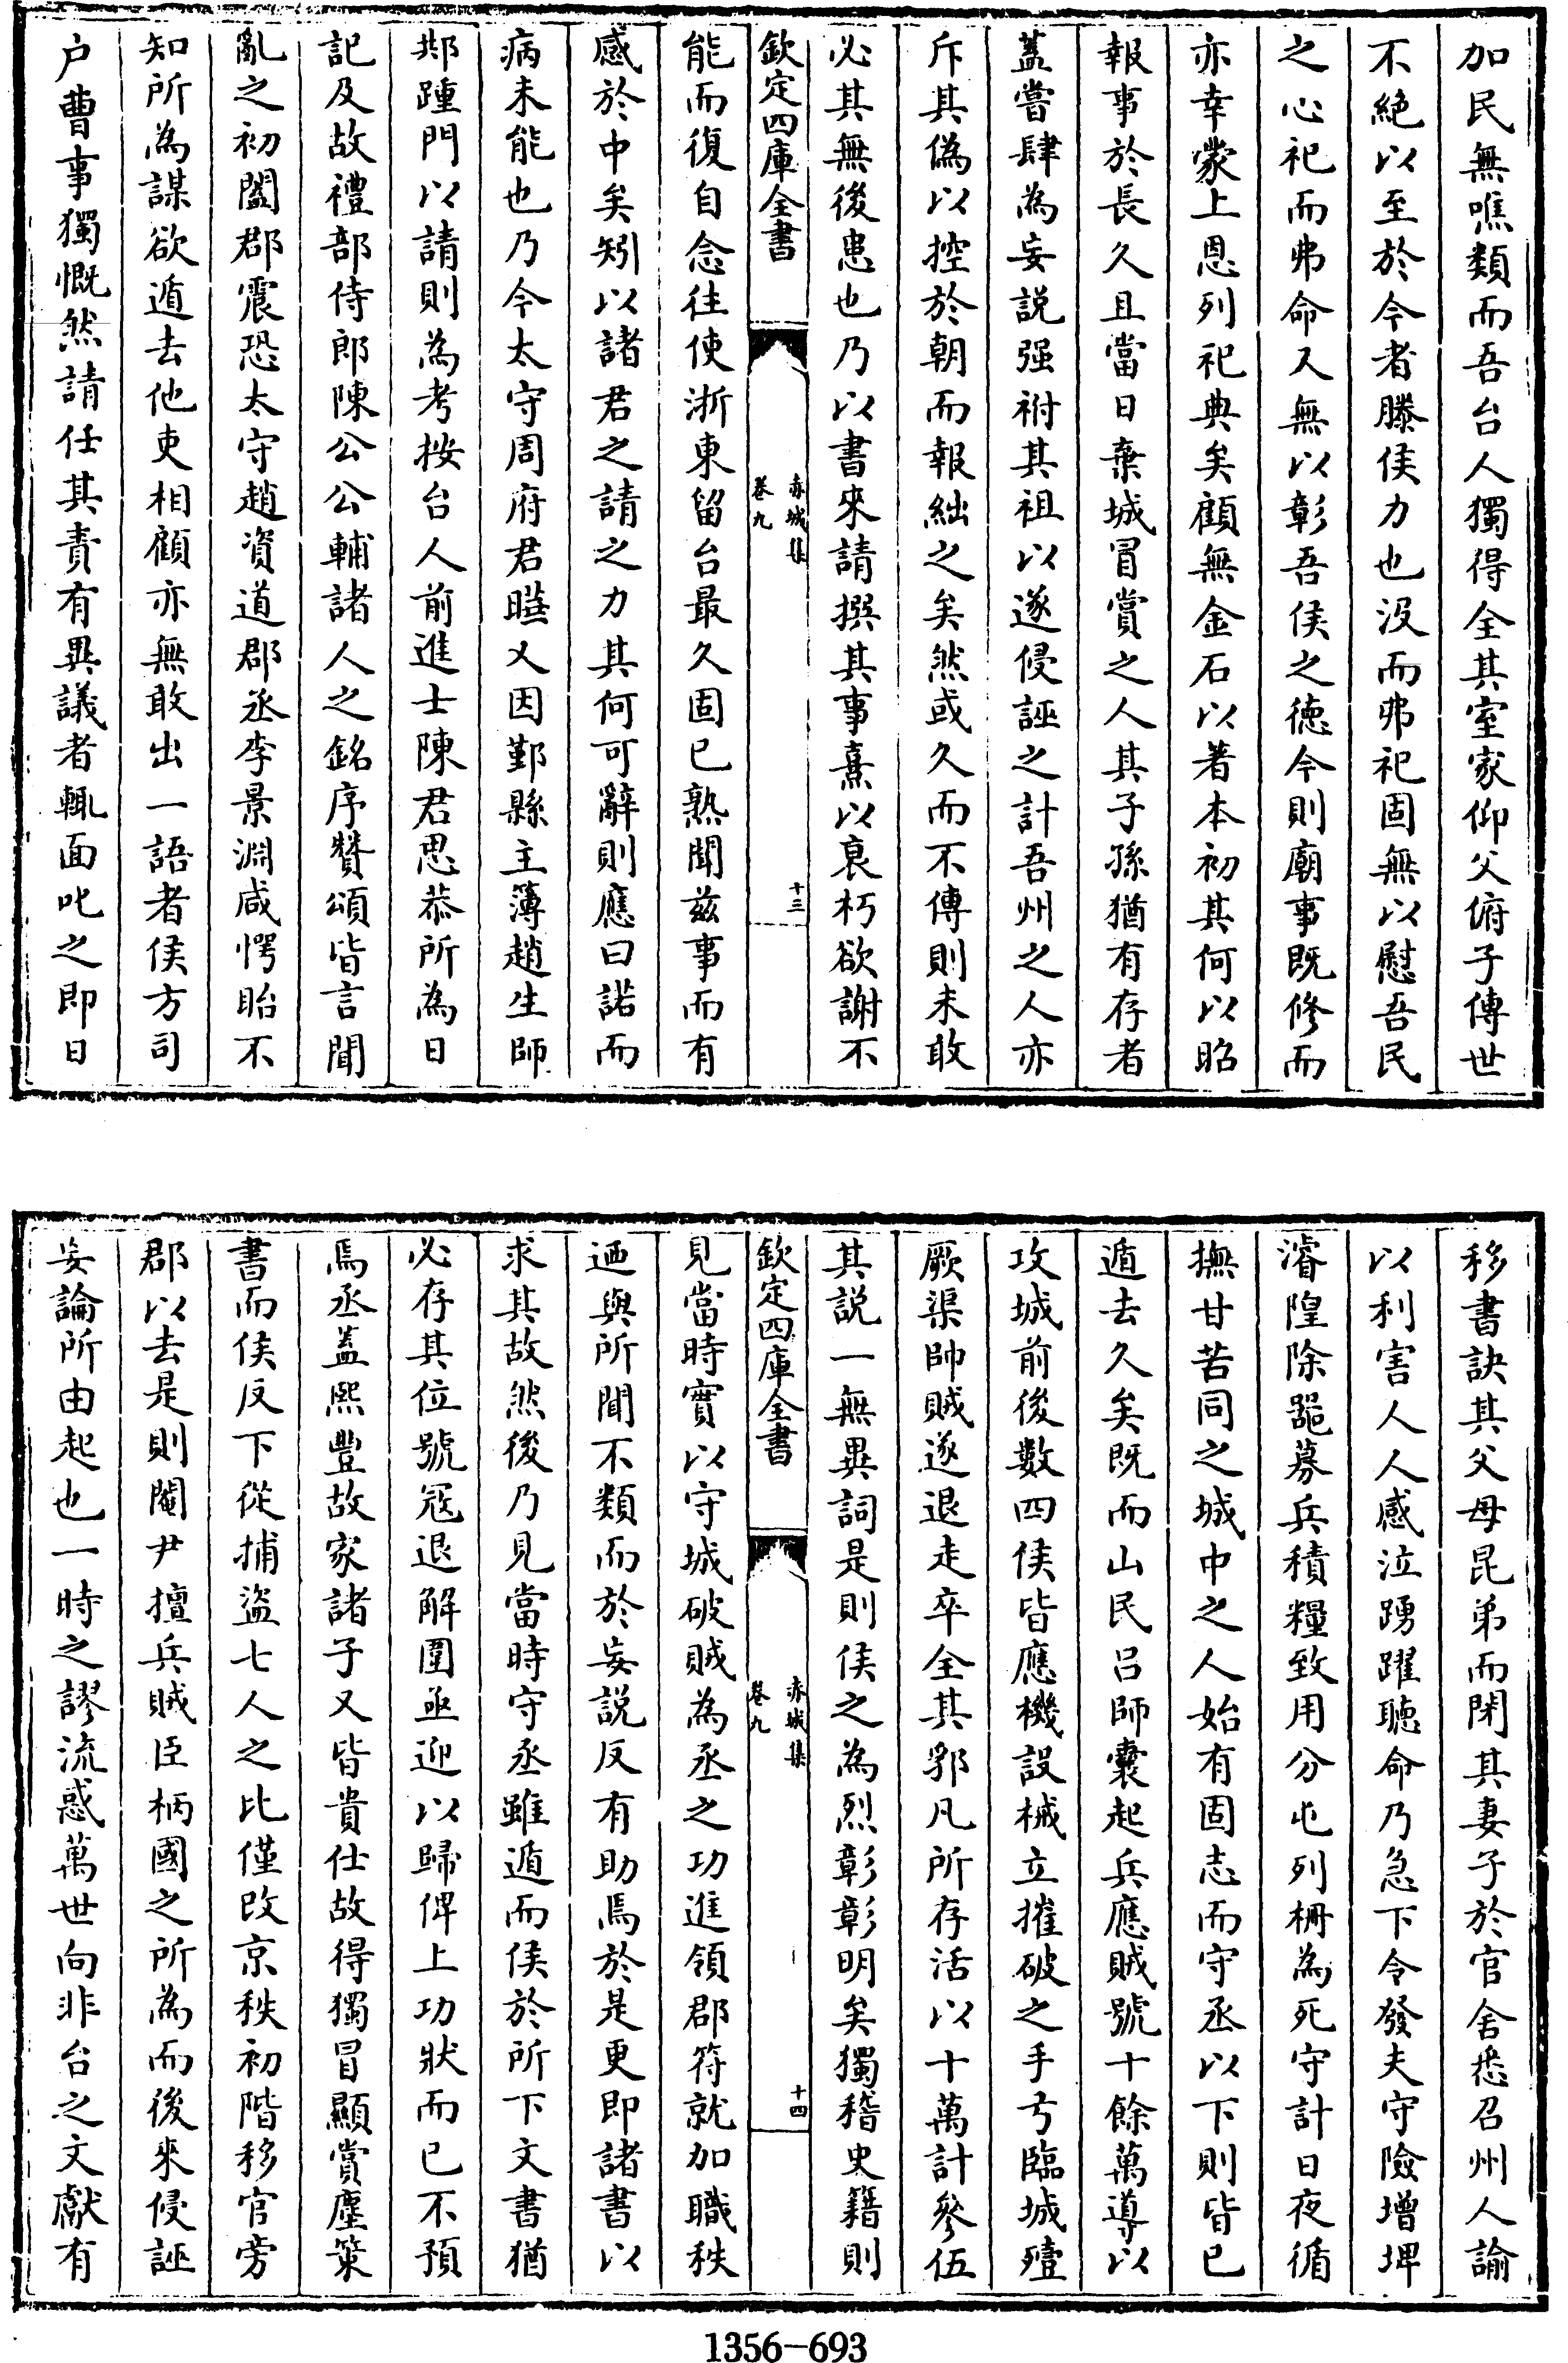 加民無噍類而吾台人獨得全其室家仰父俯子傳世
不絶以至於今者滕侯力也没而弗祀固無以慰吾民
之心祀而弗命又無以彰吾侯之徳今則廟事既修而
亦幸蒙上恩列祀典矣顧無金石以著本初其何以昭
報事於長久且當日棄城冒賞之人其子孫猶有存者
蓋嘗肆為妄説强祔其祖以遂侵誣之計吾州之人亦
斥其偽以控於朝而報絀之矣然或久而不傳則未敢
必其無後患也乃以書來請撰其事熹以衰朽欲謝不
欽定四庫全書
赤城集
卷九
十三
能而復自念往使浙東留台最久固已熟聞兹事而有
感於中矣矧以諸君之請之力其何可辭則應曰諾而
病未能也乃今太守周府君㬊又因鄞縣主簿趙生師
䢼踵門以請則為考按台人前進士陳君思恭所為日
記及故禮部侍郎陳公公輔諸人之銘序贊頌皆言聞
亂之初闔郡震恐太守趙資道郡丞李景淵咸愕眙不
知所為謀欲遁去他吏相顧亦無敢出一語者侯方司
户曹事獨慨然請任其責有異議者輒面叱之即日
移書訣其父母昆弟而閉其妻子於官舍悉召州人諭
以利害人人感泣踴躍聴命乃急下令發夫守險增埤
濬隍除器募兵積糧致用分屯列柵為死守計日夜循
撫甘苦同之城中之人始有固志而守丞以下則皆已
遁去久矣既而山民吕師囊起兵應賊號十餘萬導以
攻城前後數四侯皆應機設械立摧破之手弓臨城殪
厥渠帥賊遂退走卒全其郛凡所存活以十萬計參伍
其説一無異詞是則侯之為烈彰彰明矣獨稽史籍則
欽定四庫全書
赤城集
卷九
十四
見當時實以守城破賊為丞之功進領郡符就加職秩
廼與所聞不類而於妄説反有助焉於是更即諸書以
求其故然後乃見當時守丞雖遁而侯於所下文書猶
必存其位號冦退解圍亟迎以歸俾上功狀而已不預
焉丞蓋熙豐故家諸子又皆貴仕故得獨冒顯賞塵策
書而侯反下從捕盜七人之比僅改京秩初階移官旁
郡以去是則閹尹擅兵賊臣柄國之所為而後來侵誣
妄論所由起也一時之謬流惑萬世向非台之文獻有
1356-693